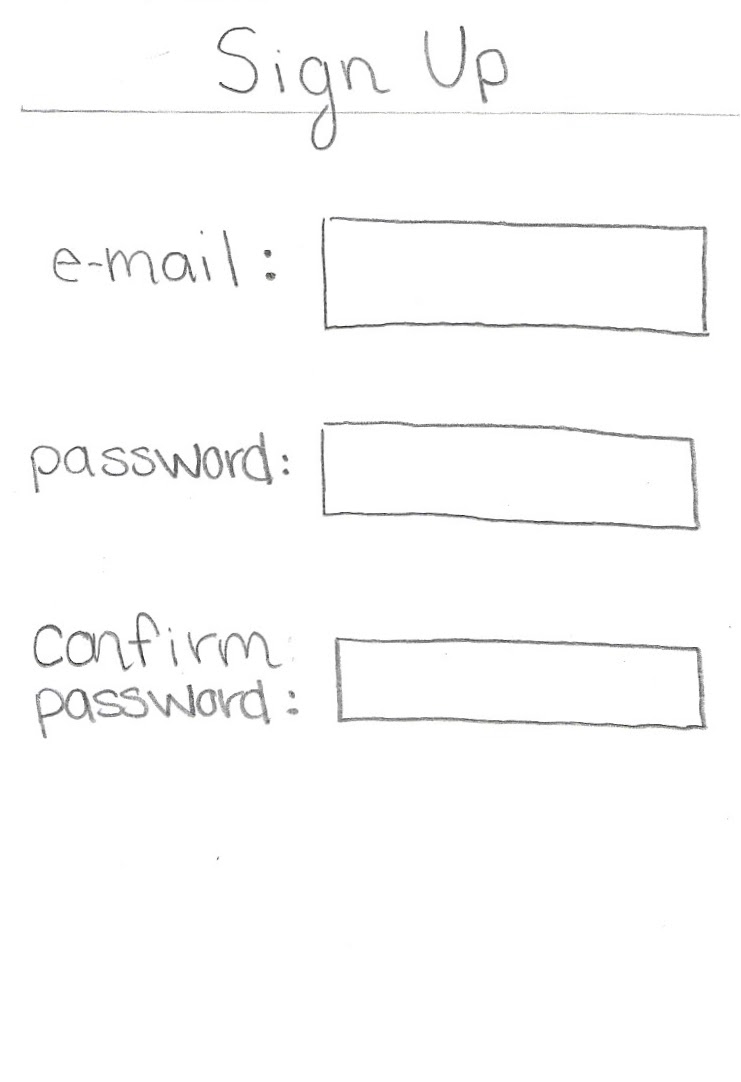 Sign Up
e-mail:
password:
Confirm
password: